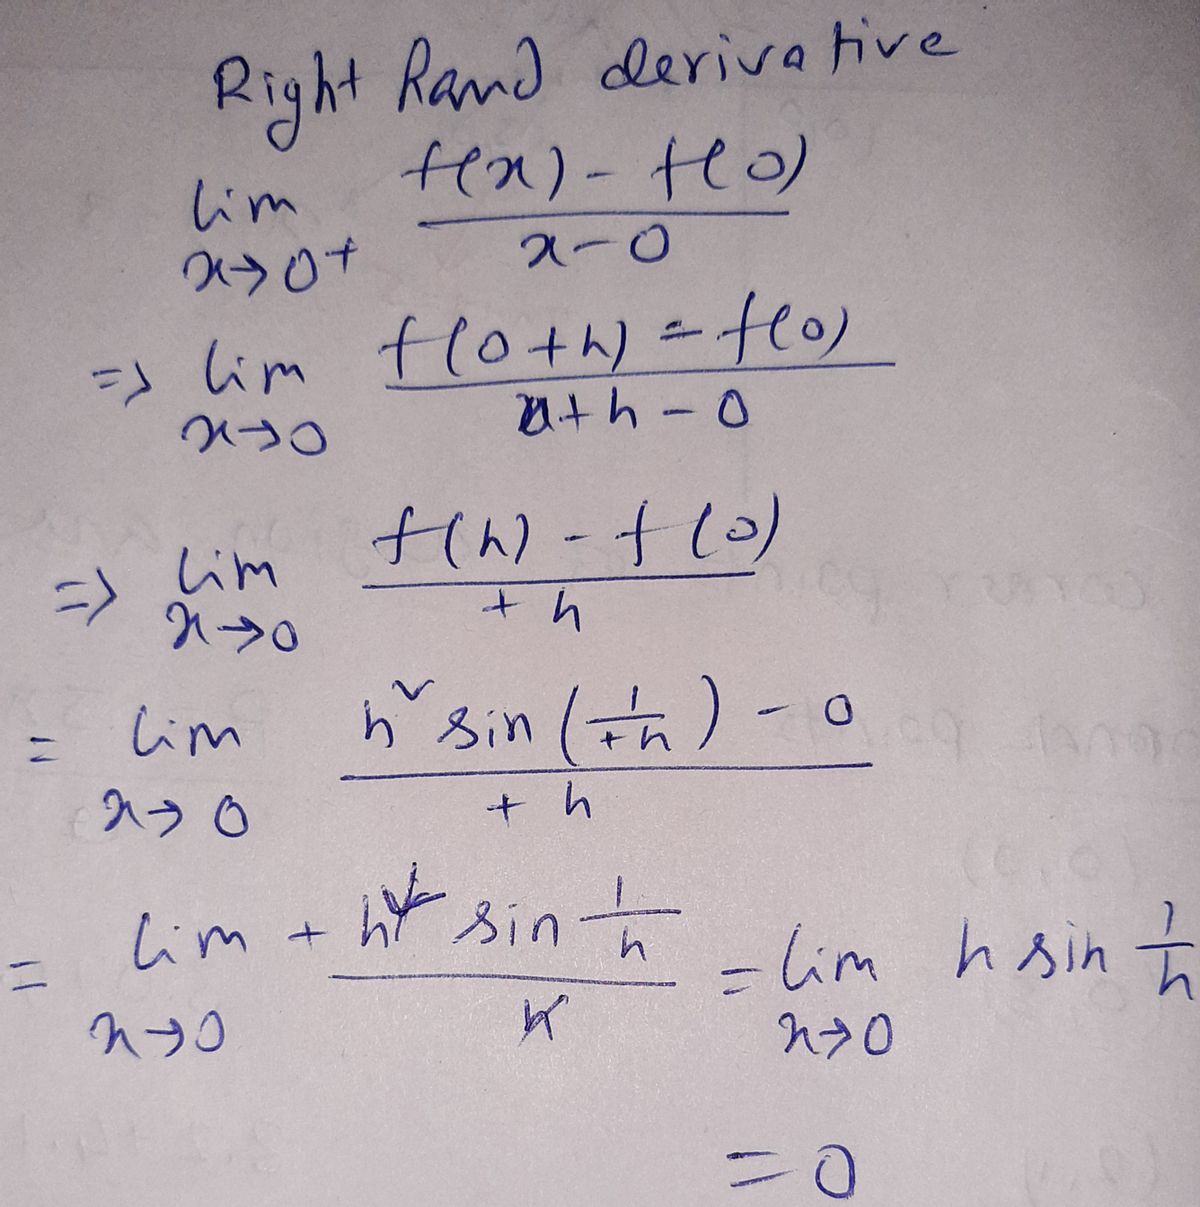 Right hand derivative
lim x→0+ (f(x) - f(0)) / (x-0)
=> lim x→0 (f(0+h) = f(0)) / (x+h-0)
=> lim x→0 (f(h) - f(0)) / (+h)
= lim x→0 (h² sin(1/(+h)) - 0) / (+h)
= lim x→0 + (h² sin 1/h) / h = lim x→0 h sin 1/h
= 0